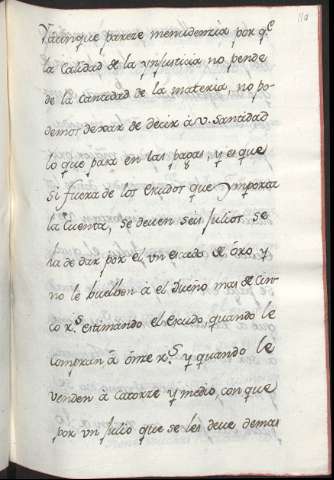 Y aunque pareze menudenzia, por q.e
la Calidad de la ynjusticia no pende
de la Cantidad de la materia, no po-
demos dexar de decir à V. Santidad
lo que pasa en las pagas, y es que
si fuera de los Escudos que ymporta
la Cuenta, se deuen seis Julios se
ha de dar por él, vn escudo de óro, y
no le buelben à el dueño mas de Cin-
co R.s estimando el escudo, quando le
Compran â ónze R.s y quando le
venden à Catorze y medio, con que
por vn Julio que se les deue demas